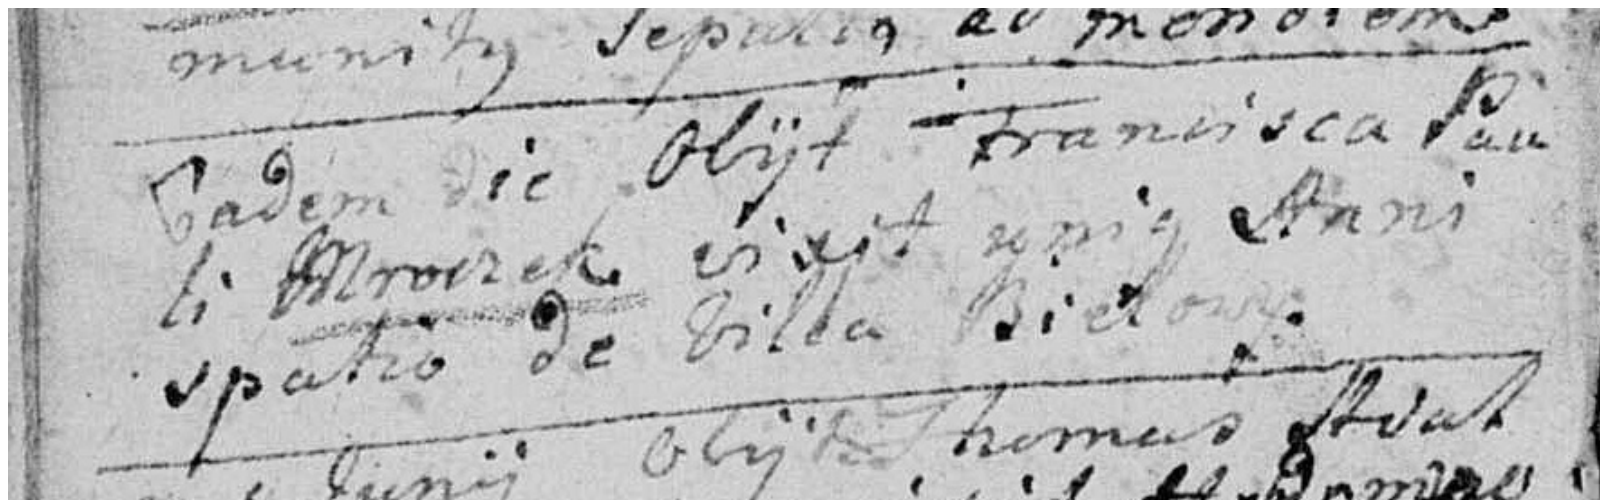 munitq Sepulta ad
Eadem die Obijt Francisca Pau
li Mroczek vixit uniq Anni
spatio de Villa Bielowy.
Junij Obijt Thomas